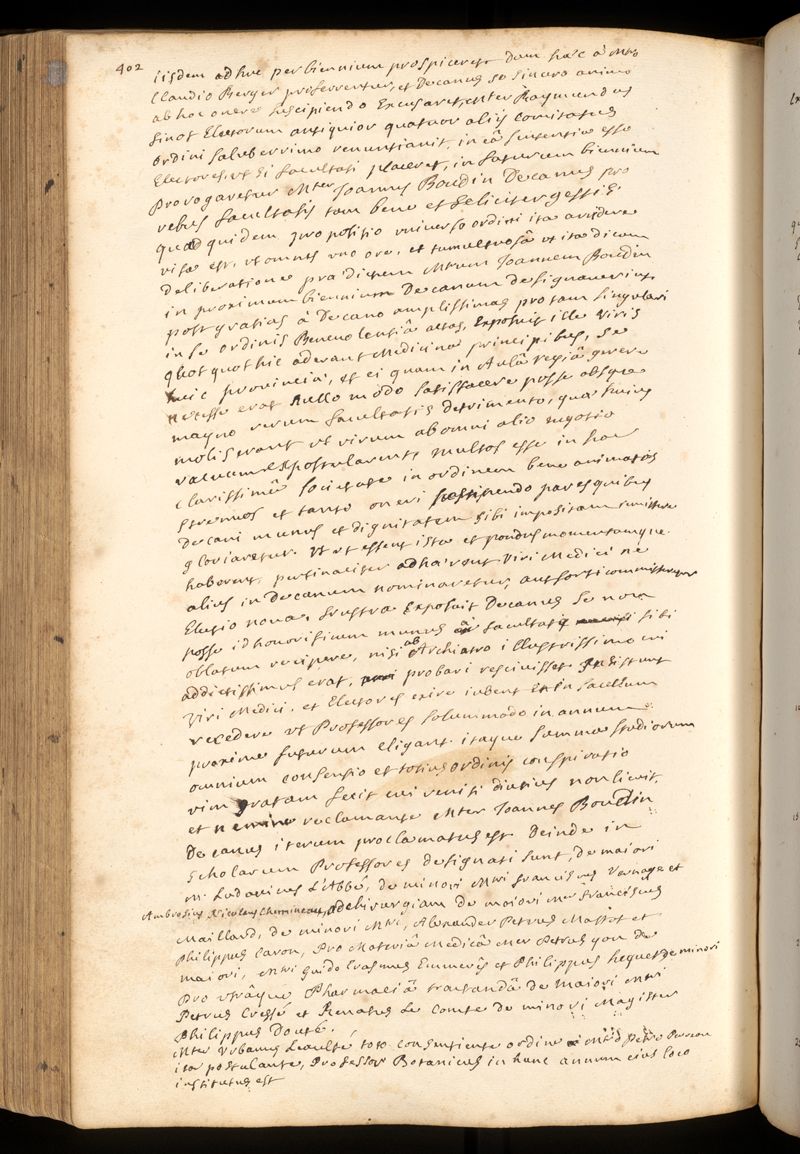 402
iisdem adhuc per biennium prospiceret dum haec a Mro
Claudio Berger proferrentur, et Decanus se sincero animo
ab hoc onere suscipiendo Excusaret, Mter Raymundus
finot Electorum antiquior quatuor aliis comitatus
ordini saluberrimo renuntiavit, in ea sententia esse
Electores, ut si facultati placeret, in futurum biennium
Prorogaretur Mter Joannes Boudin Decanus pro
rebus facultatis tam bene et feliciter gestis.
quae quidem propositio universo ordini ita arridere
visa est, ut omnes uno ore, et tumultuosa ut ita dicam
deliberatione praedictum Mtrum Joannem Boudin
in proximum biennium Decanum designaverint.
post gratias a Decano amplissimas pro tam singulari
in se ordinis Benevolentia actas, Exposuit ille Viris
quotquot hic aderant Medicinae principibus, se
huic provinciae, et ei quam in Aula regia gerere
necesse erat nullo modo satisfacere posse absque
magno rerum facultatis detrimento, quae huius
molis erant ut virum ab omni alio negotio
vacuum Expostularent, multos esse in hac
clarissima societate in ordinem bene animatos
strenuos et tanto oneri suscipiendo pares quibus
Decani munus et dignitatem sibi impositam
gloriaretur. Ut ut essent ista et pondus momentumque
haberent, pertinaciter adhaerent Viri Medici ne
alius in Decanum nominaretur, aut sorti committeretur
Electio nova, frustra Exposuit Decanus se non
posse id honorificum munus a facultate sibi
oblatum recipere, nisi ab Archiatro illustrissimo cui
addictissimus erat, probari rescivisset. Insistunt
Viri Medici, et Electores exire iubent et in sacellum
recedere ut Professores solummodo in annum
proxime futurum eligant. itaque summa studiorum
omnium consensio et totius ordinis conspiratio
vim gratam fecit cui reniti diutius non licuit,
et nemine reclamante Mter Joannes Boudin
Decanus iterum proclamatus est. Deinde in
scholarum Professores designati sunt, de maiori
m. Ludovicus L'Abbé, de minori Mri franciscus Vernage et
Ambrosius Nicolaus Chemineau, ad chirurgiam de maiori Mr franciscus
Maillard, de minori Mri, Alexander Petrus Mattot et
Philippus Caron, Pro Materia Medica Mer Petrus yon de
maiori, Mri guido Erasmus Emmeres et Philippus hequet de minori
Pro utraque Pharmacia tractanda de maiori Mri
Petrus Cressé et Renatus Le Comte de minori Magister
Philippus Douté.
Mter Urbanus Leaulté toto consentiente ordine et Mro Petro
ita postulante, Professor Botanicus in hunc annum eius loco
institutus est